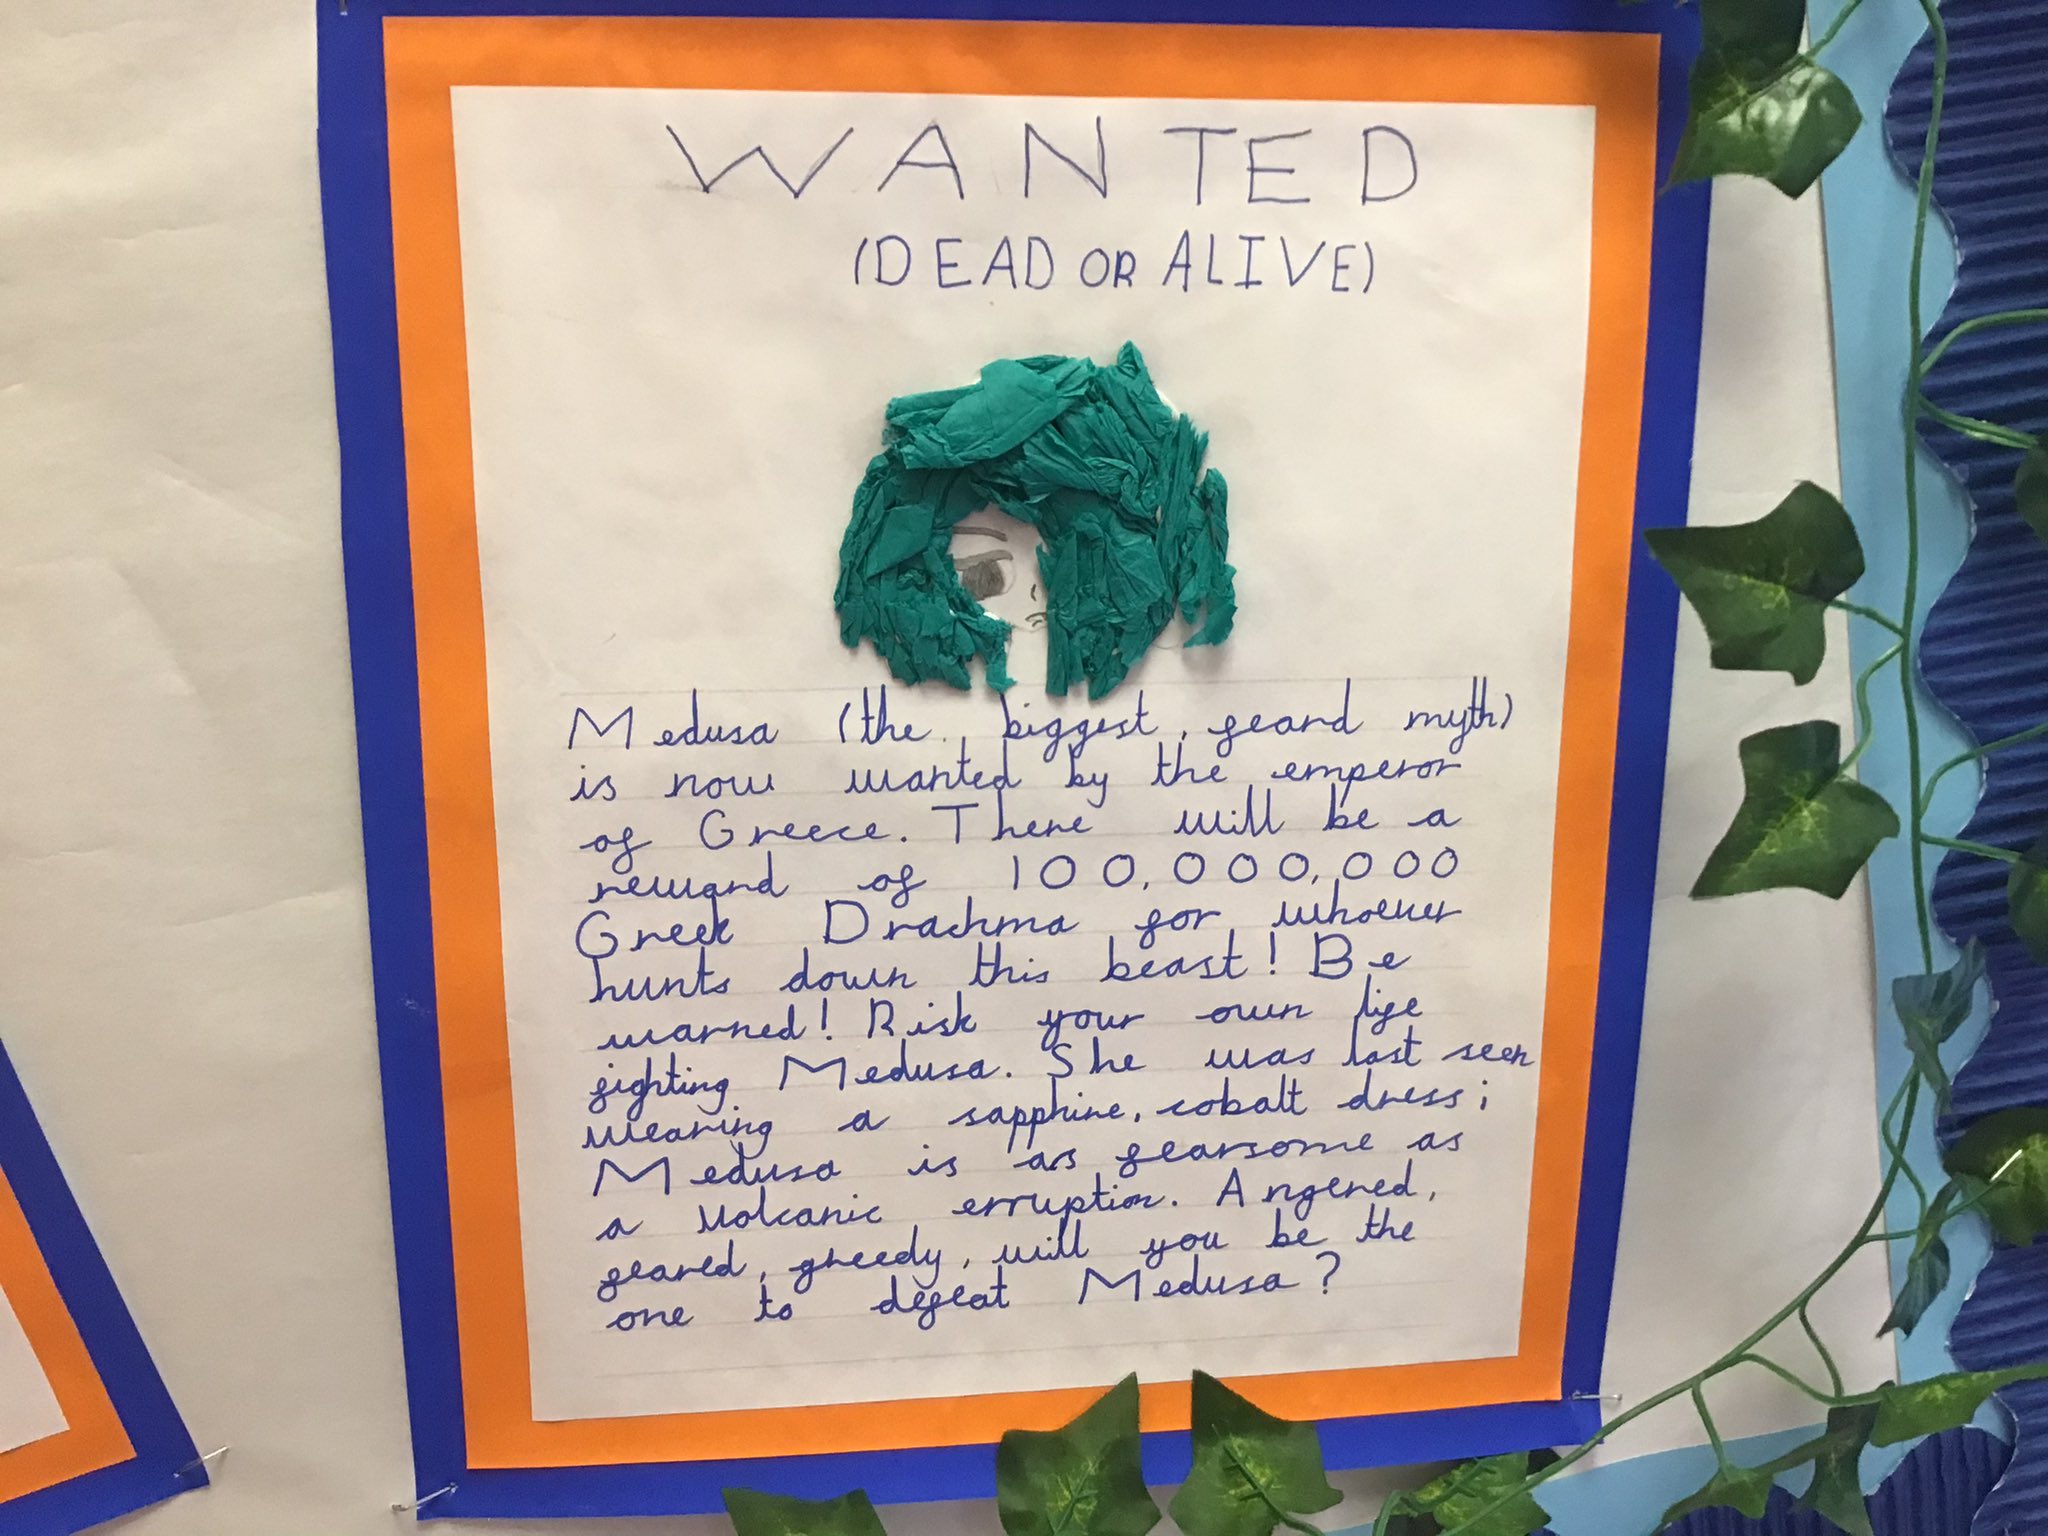 WANTED
(DEAD OR ALIVE)
Medusa (the, biggest, feard myth)
is now wanted by the emperor
of Greece. There will be a
reward of 100,000,000
Greek Drachma for whoever
hunts down this beast! Be
warned! Risk your own life
fighting Medusa. She was last seen
wearing a sapphire, cobalt dress;
Medusa is as fearsome as
a volcanic erruption. Angered,
feared, greedy, will you be the
one to defeat Medusa?